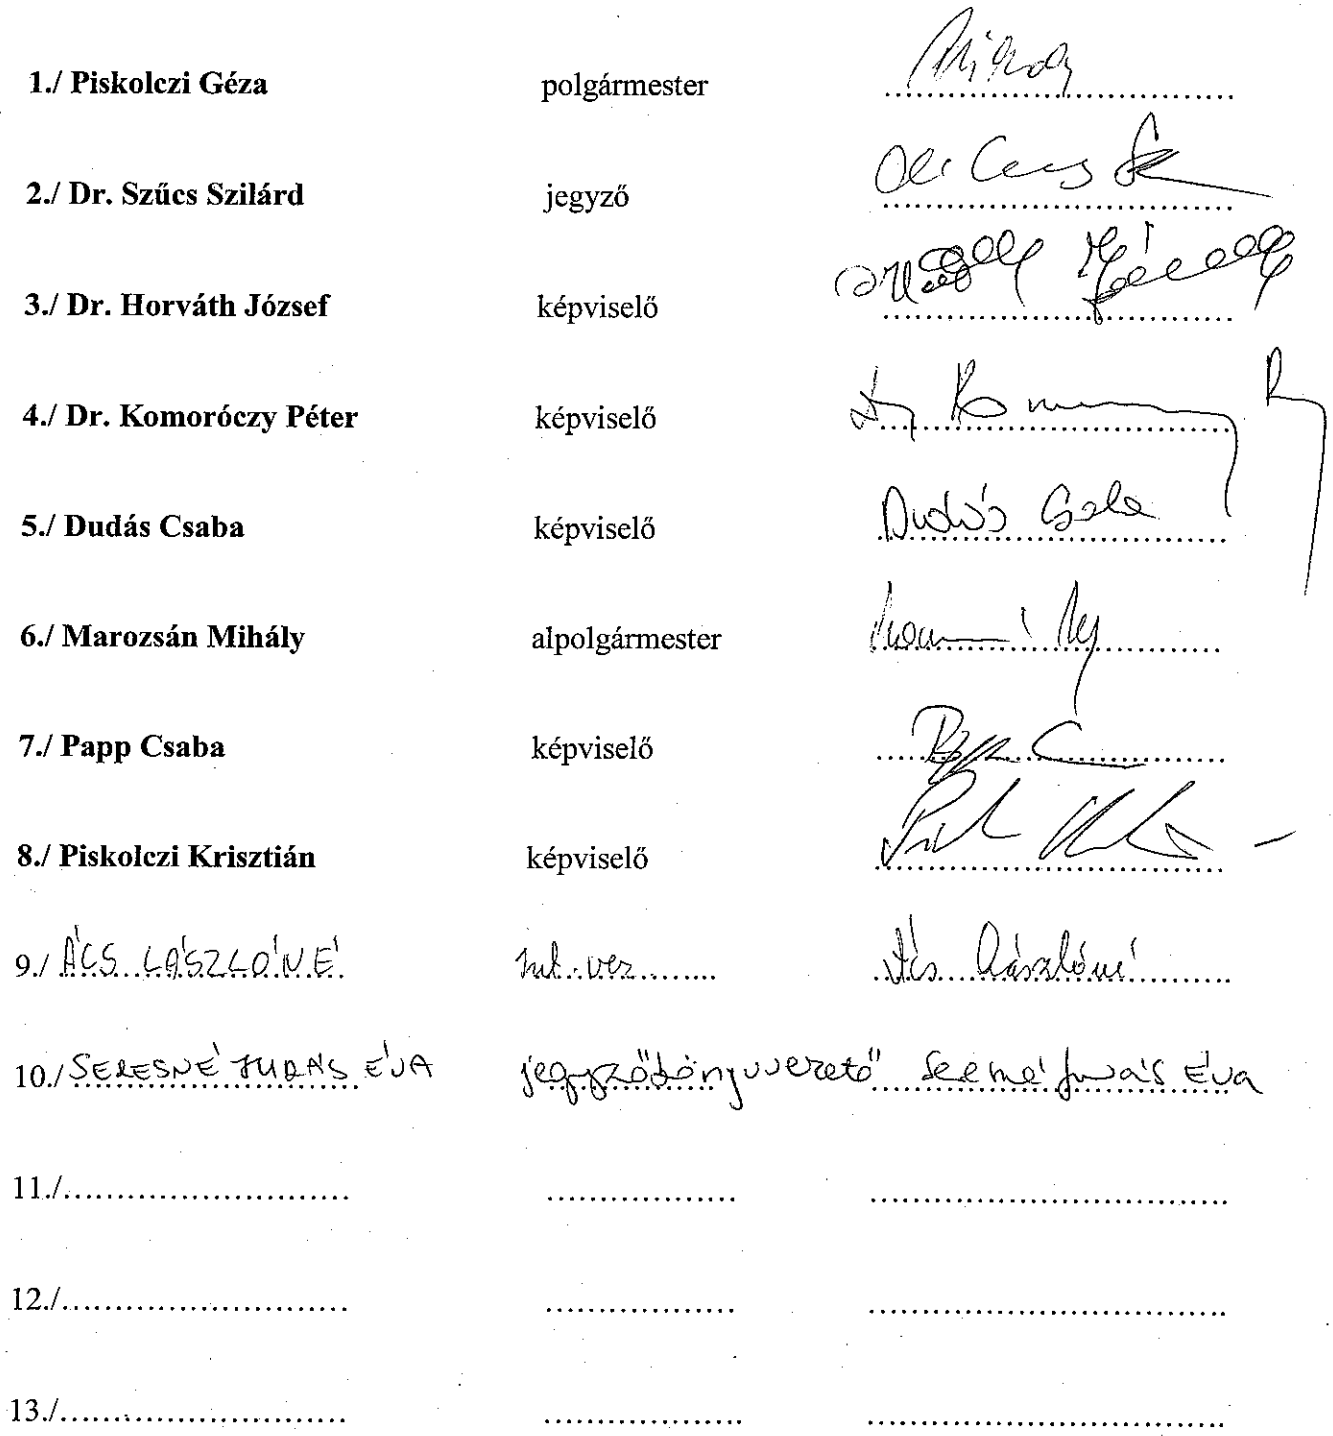 1./ Piskolczi Géza polgármester
2./ Dr. Szűcs Szilárd jegyző
3./ Dr. Horváth József képviselő
4./ Dr. Komoróczy Péter képviselő
5./ Dudás Csaba képviselő Dudás Csaba
6./ Marozsán Mihály alpolgármester
7./ Papp Csaba képviselő Papp C
8./ Piskolczi Krisztián képviselő
9./ ÁCS LÁSZLÓNÉ Ács Lászlóné
10./ SERESNÉ JUHÁS ÉVA jegyzőkönyvvezető Éva
11./.......................... .................. ..................................
12./.......................... .................. ..................................
13./.......................... .................. ..................................